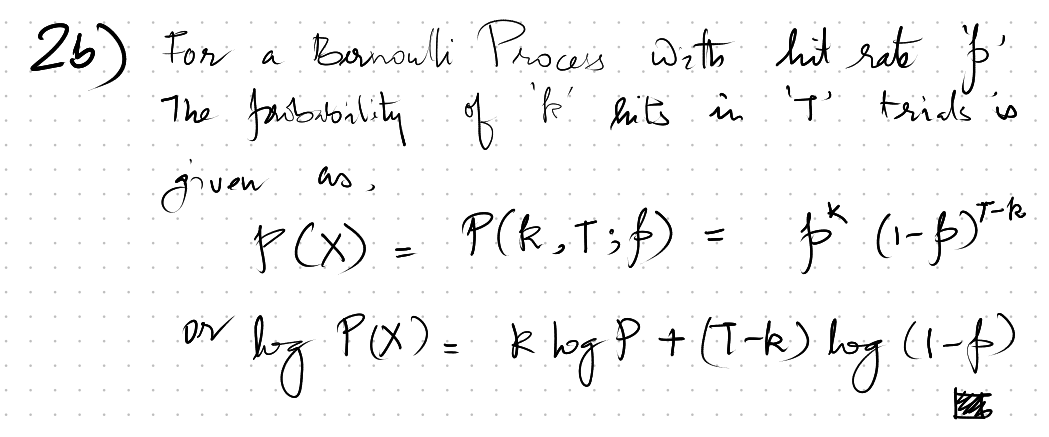 2b) For a Bernoulli Process with hit rate 'p'
The probability of 'k' hits in 'T' trials is
given as,
P(X) = P(k,T;p) = p^k (1-p)^{T-k}
or log P(X) = k log P + (T-k) log (1-p)